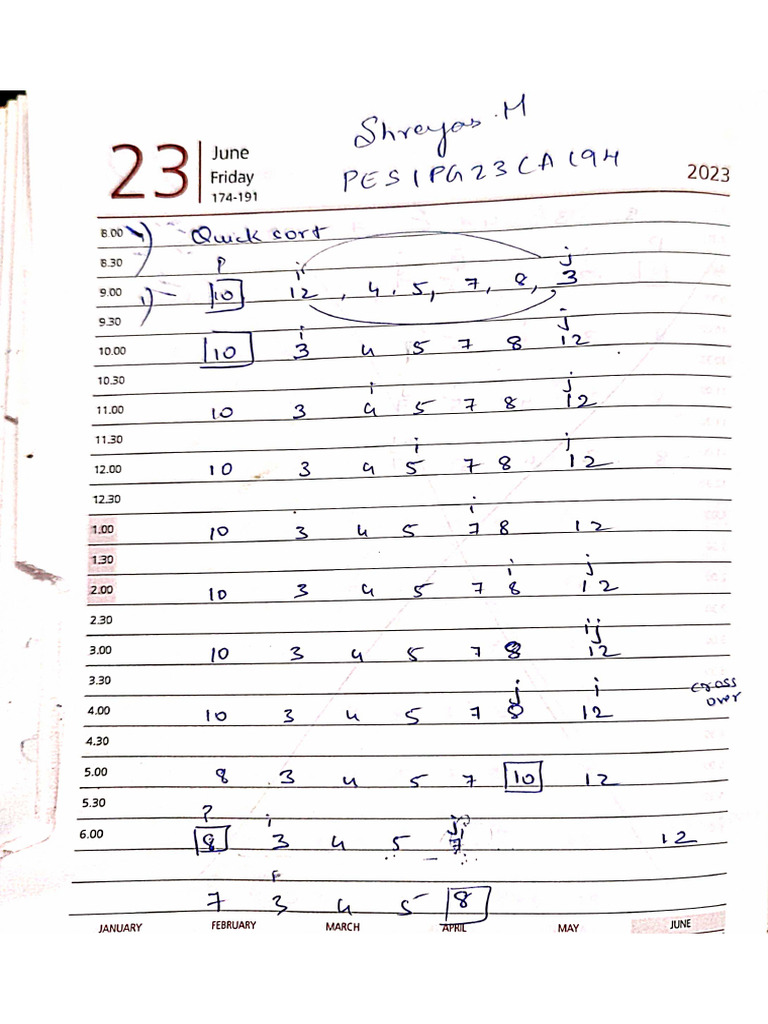 Shreyas.M
PES1PG23CA194
23 June 2023
Friday
174-191
8.00 1) Quick sort
8.30 P i j
9.00 1) 10 12, 4, 5, 7, 8, 3
9.30 i j
10.00 10 3 4 5 7 8 12
10.30 i j
11.00 10 3 4 5 7 8 12
11.30 i j
12.00 10 3 4 5 7 8 12
12.30 i
1.00 10 3 4 5 7 8 12
1.30 i j
2.00 10 3 4 5 7 8 12
2.30 i j
3.00 10 3 4 5 7 8 12
3.30 j i cross over
4.00 10 3 4 5 7 8 12
4.30
5.00 8 3 4 5 7 10 12
5.30 P i j
6.00 8 3 4 5 7 12
7 3 4 5 8
JANUARY FEBRUARY MARCH APRIL MAY JUNE